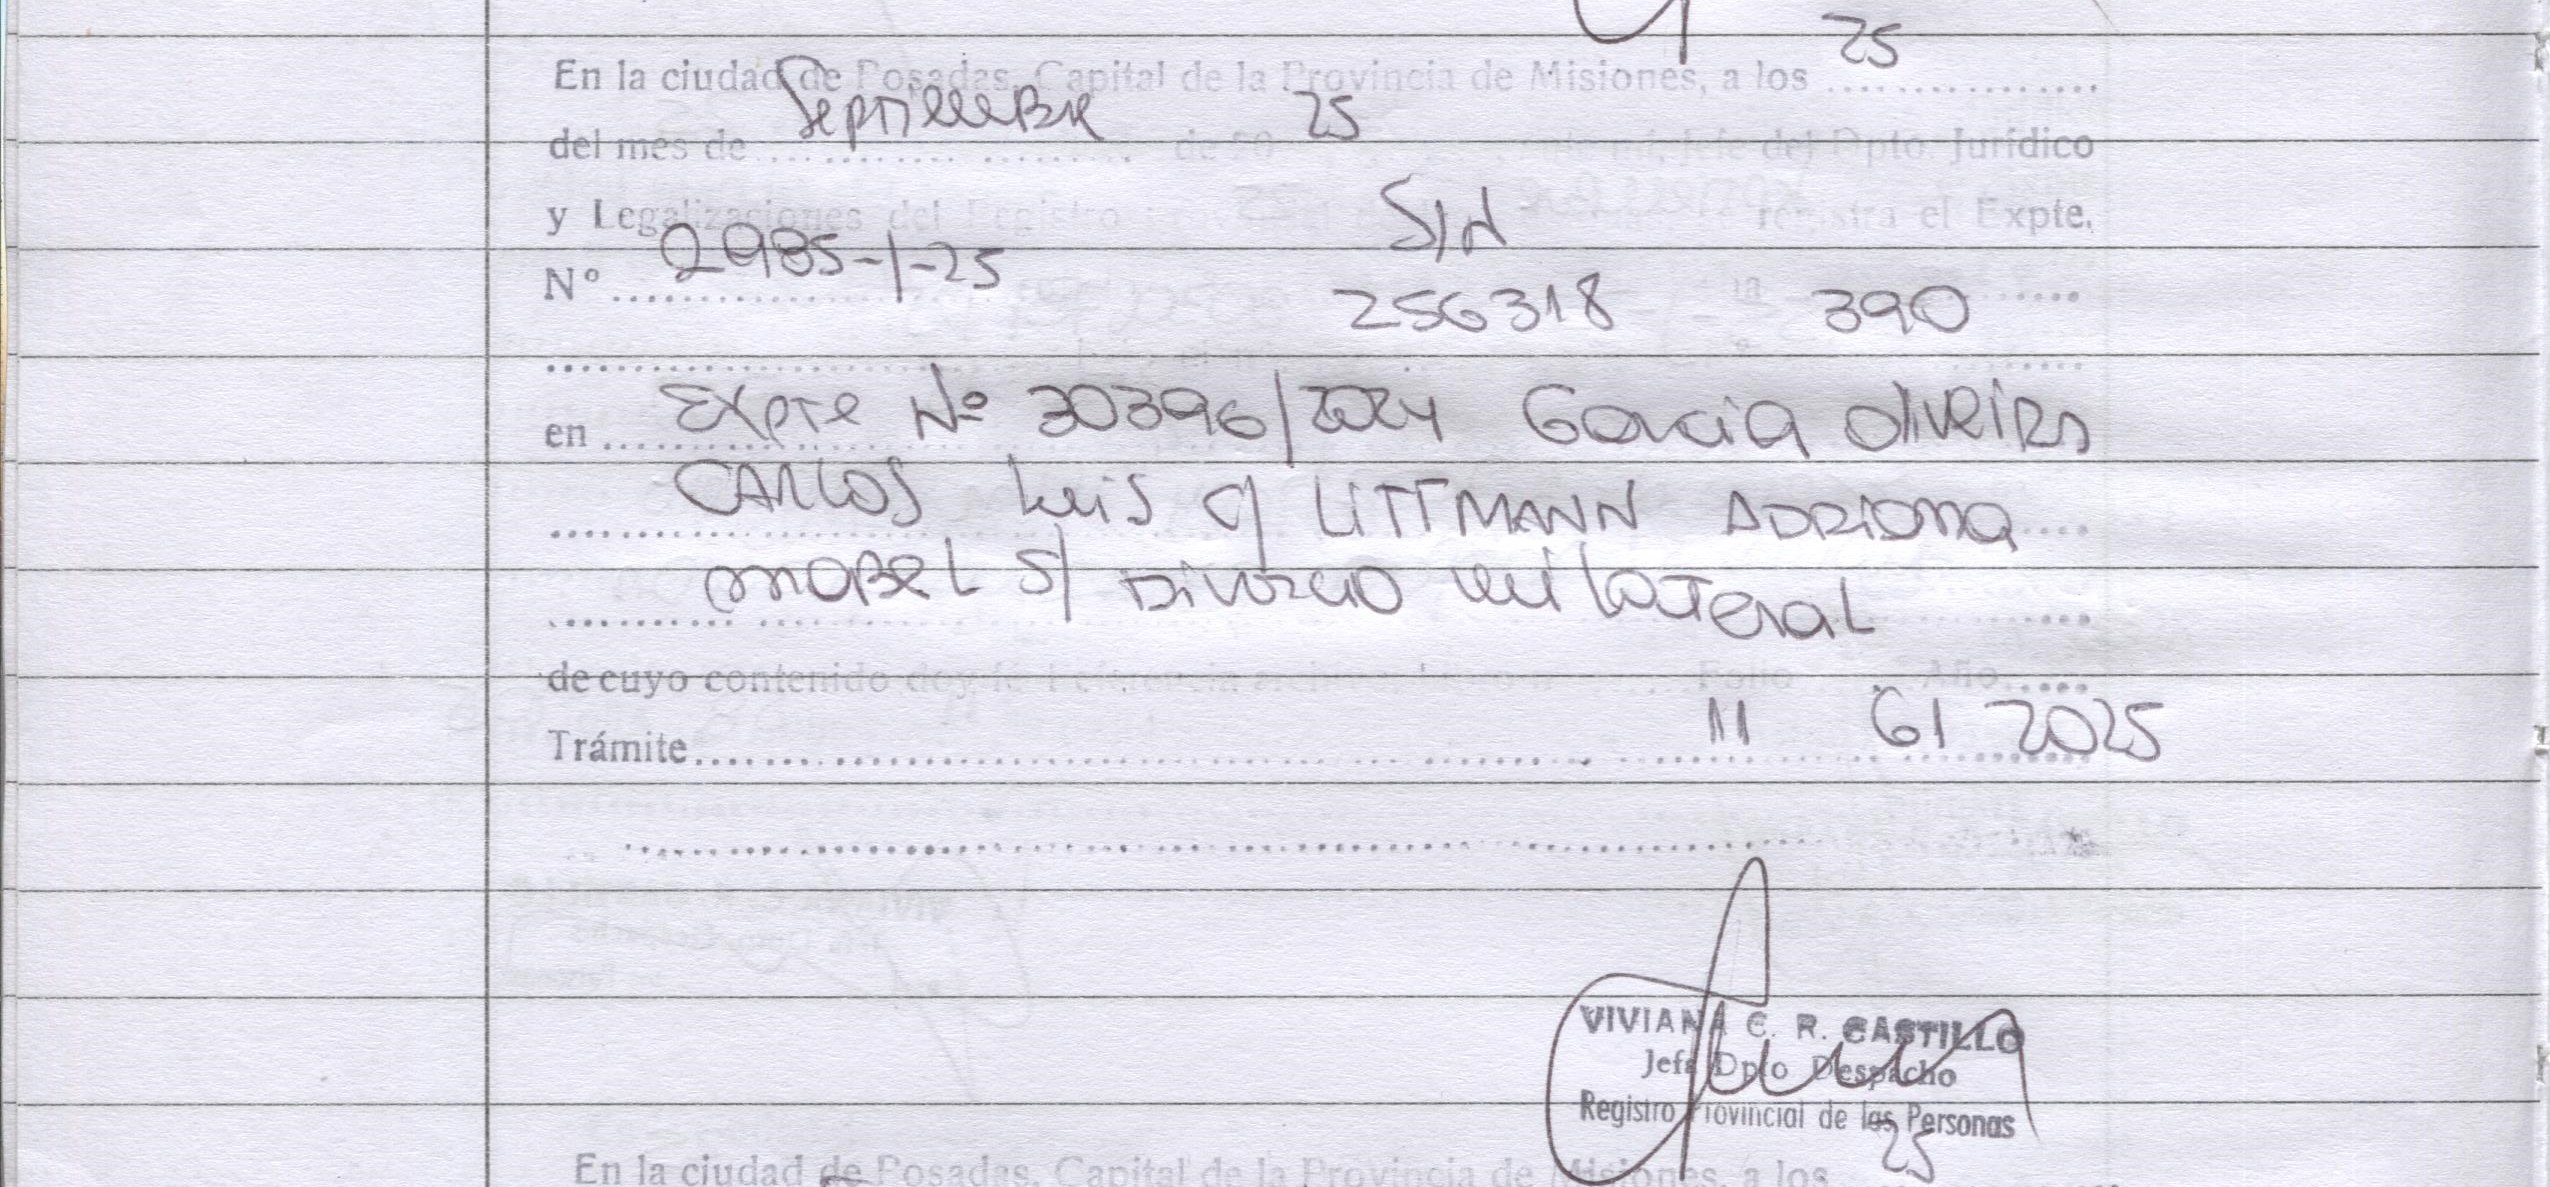 25
En la ciudad de Posadas, Capital de la Provincia de Misiones, a los ................
Septiembre 25
del mes de ........................ de 20 Jefe del Dpto. Jurídico
S/N
y Legalizaciones del Registro registra el Expte.
2985-1-25
Nº ................
256318 390
Expte Nº 30396/2024 Garcia Oliveira
en
CARLOS Luis c/ LITTMANN ADRIANA
MABEL S/ Divorcio unilateral
de cuyo contenido doy fe Referencia Folio Año.....
11 61 2025
Trámite................
VIVIANA C. R. CASTILLO
Jefa Dpto Despacho
Registro Provincial de las Personas
25
En la ciudad de Posadas, Capital de la Provincia de Misiones, a los